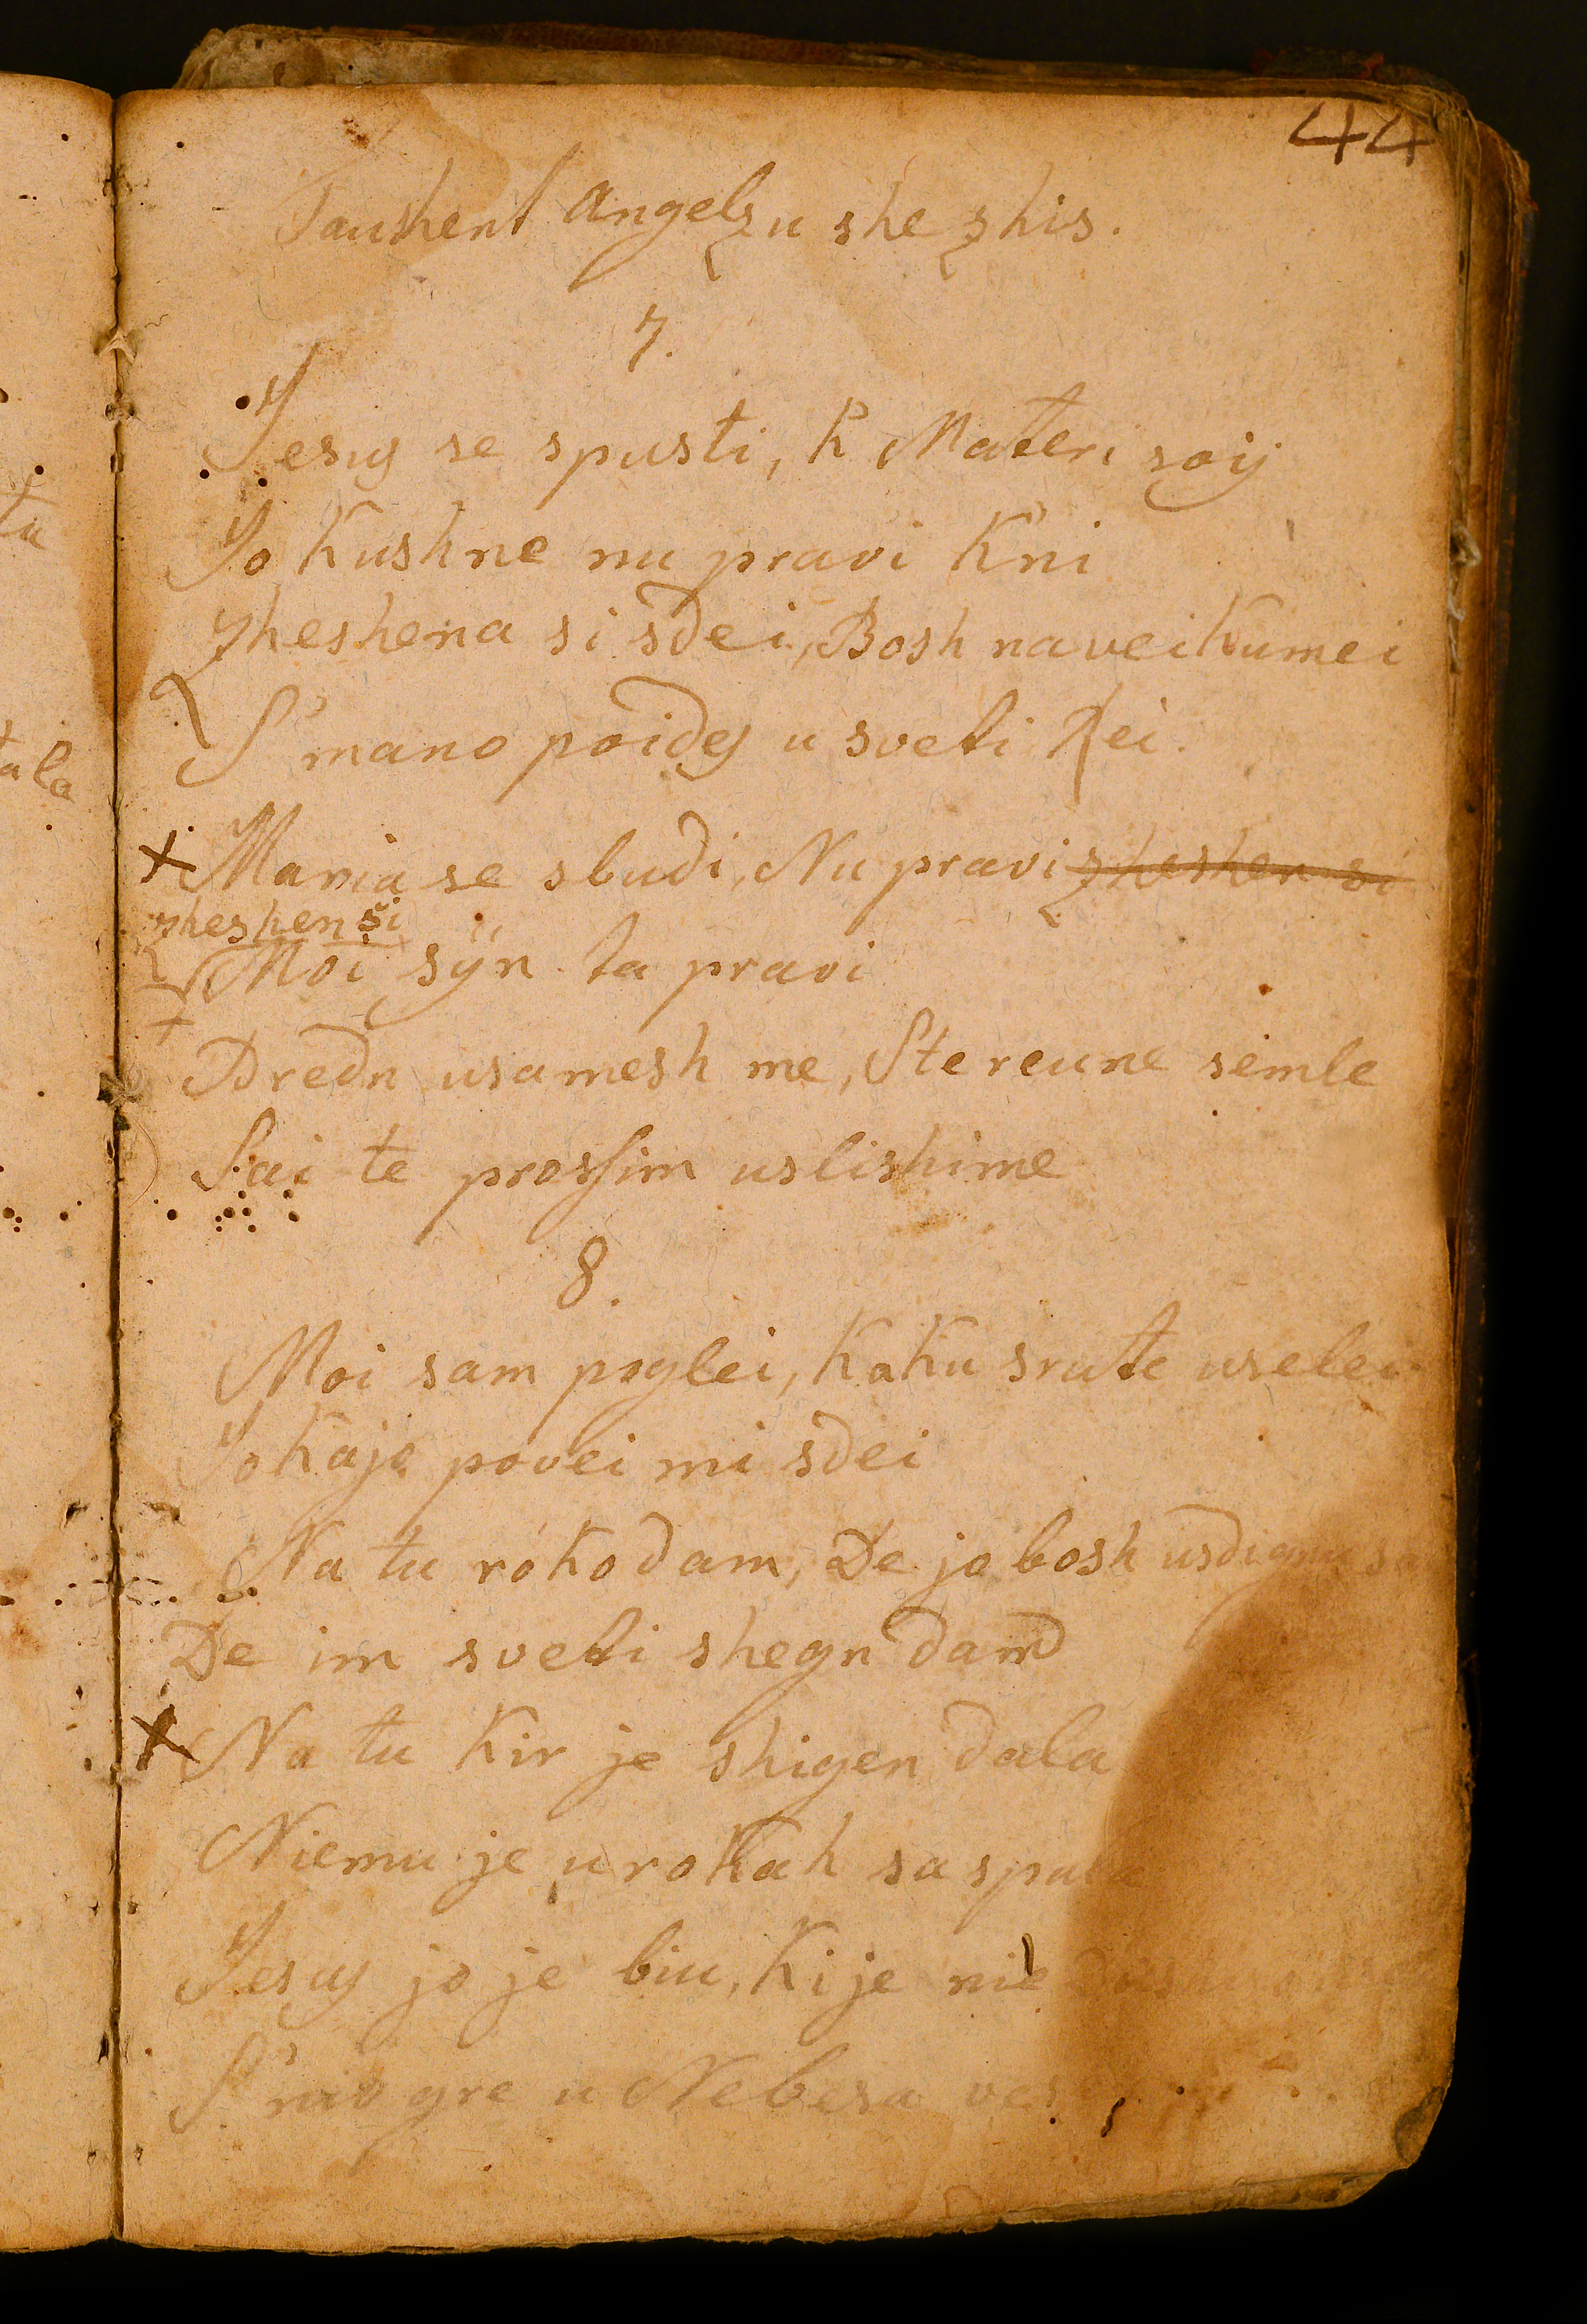 44
Taushent Angelzu she zhis.
7.
Jesus se spusti, k Materi soij
Jo kushne nu pravi k'ni
zheshena si sdei, Bosh naveikumei
S'mano poides u sveti Rei.
x Maria se sbudi, Nu pravi zheshen si
zheshen si
Moi sÿn ta pravi
Dredn usamesh me, Ste reune semle
Sai te prossim uslishime
8.
Moi sam poglei, kaku srate uselei
Jo kajo povei mi sdei
Na tu roko dam, De jo bosh
De im sveti shegn dam
x Na tu kir je shigen dala
Niemu je u rokah sa
Jesus jo je biu, ki je nie
S'nio gre u Nebesa
tu
ala